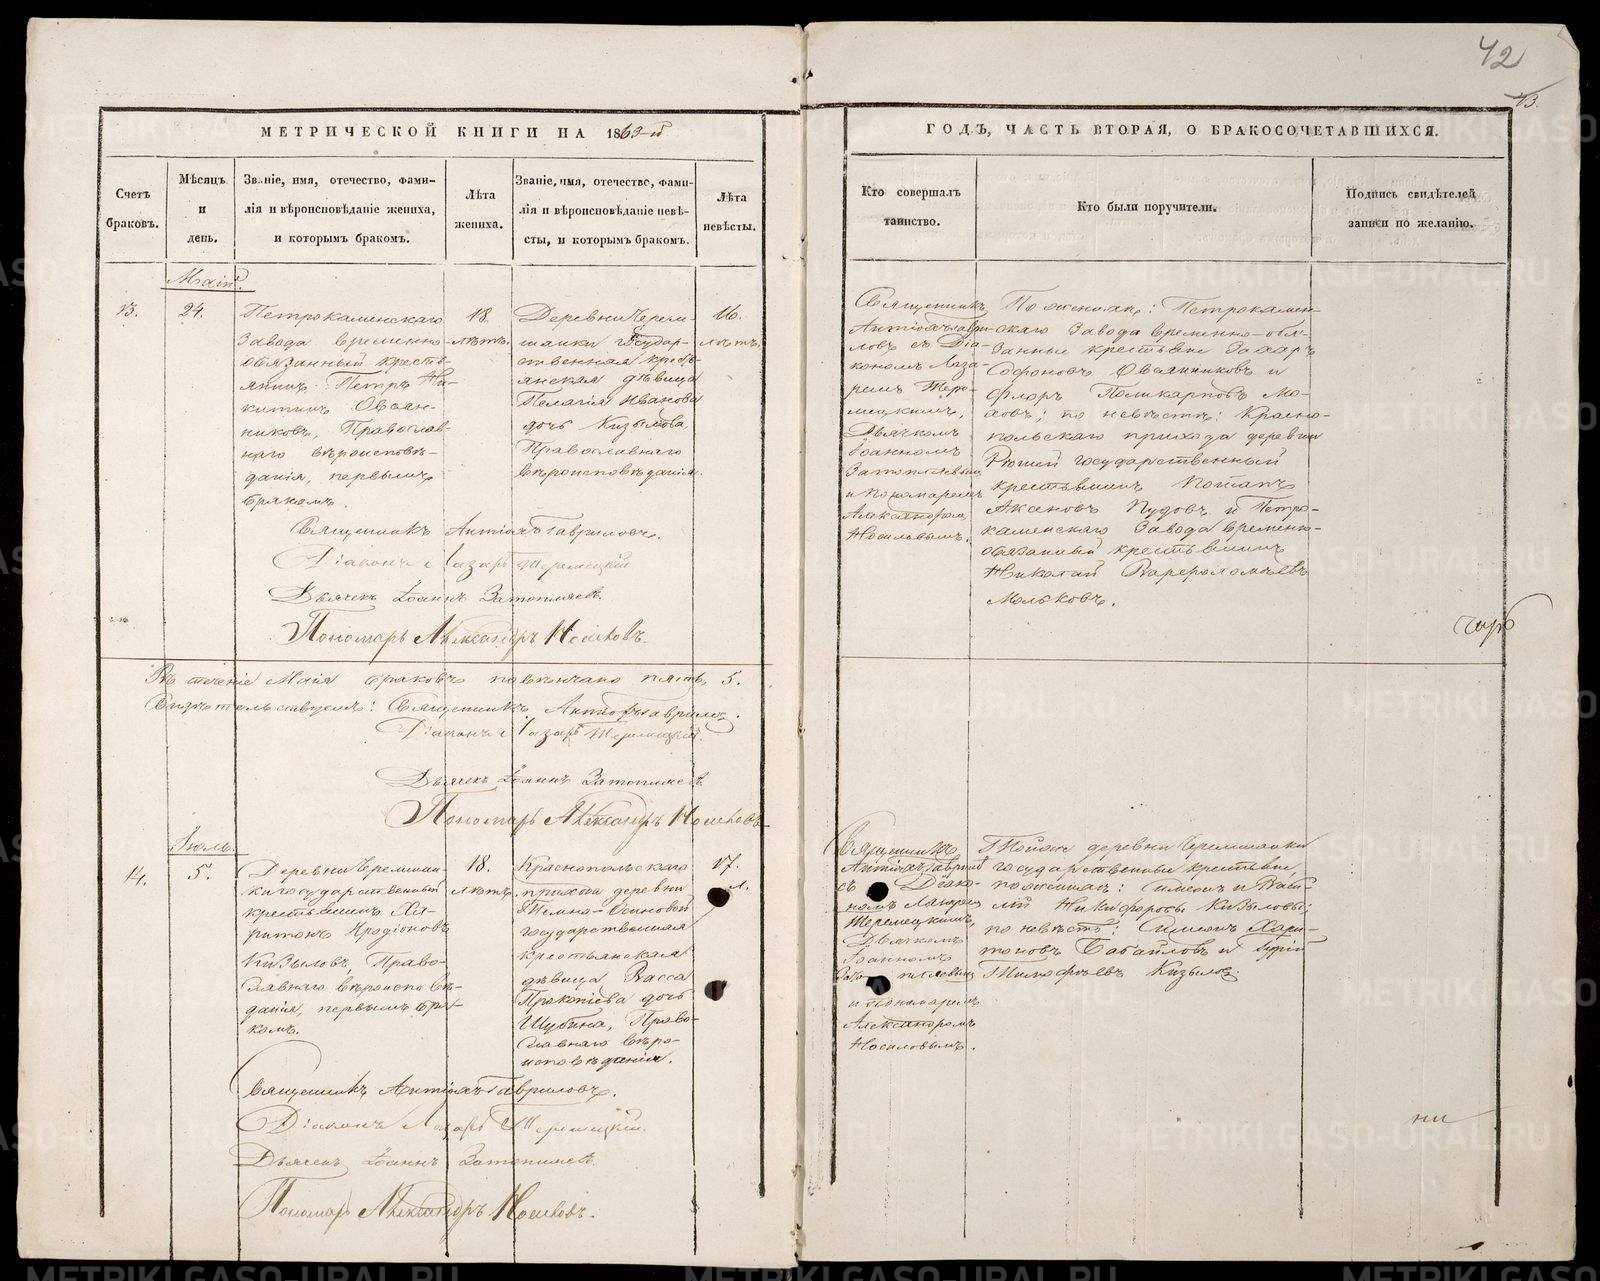 42
43.
МЕТРИЧЕСКОЙ КНИГИ НА 1863-й
ГОДЪ, ЧАСТЬ ВТОРАЯ, О БРАКОСОЧЕТАВШИХСЯ.
Счетъ
браковъ.
Мѣсяцъ
и
день.
Званіе, имя, отечество, фами-
лія и вѣроисповѣданіе жениха,
и которымъ бракомъ.
Лѣта
жениха.
Званіе, имя, отечество, фами-
лія и вѣроисповѣданіе невѣ-
сты, и которымъ бракомъ.
Лѣта
невѣсты.
Кто совершалъ
таинство.
Кто были поручители.
Подпись свидѣтелей
записи по желанію.
Маія.
13.
24.
Петрокаменскаго
Завода временно-
обязанный кресть-
янинъ Петръ Ни-
китинъ Овсян-
никовъ, Православ-
наго вѣроисповѣ-
данія, первымъ
бракомъ.
18.
лѣтъ.
Деревни Череми-
шанки Государ-
ственная кресть-
янская дѣвица
Пелагія Иванова
дочь Кизылова
Православнаго
вѣроисповѣданія.
16.
лѣтъ.
Священникъ
Антіохъ Гаври-
ловъ съ Діа-
кономъ Лаза-
ремъ Тере-
мецкимъ,
Дьячкомъ
Іоанномъ
Затопляевымъ
и Пономаремъ
Александромъ
Носиловымъ.
По женихѣ: Петрокамен-
скаго Завода временно-обя-
занные крестьяне Захаръ
Софоновъ Овсянниковъ и
Флоръ Поликарповъ Мо-
ховъ; по невѣстѣ: Красно-
польскаго прихода деревни
Рюшей государственный
крестьянинъ Потапъ
Аксеновъ Пудовъ и Петро-
каменскаго Завода временно-
обязанный крестьянинъ
Николай Варфоломѣевъ
Мальковъ.
Священникъ Антіохъ Гавриловъ.
Діаконъ Лазарь Теремецкій
Дьячекъ Іоаннъ Затопляевъ
Пономарь Александръ Носиловъ.
Въ теченіе Маія браковъ повѣнчано пять, 5.
Свидѣтельствуемъ: Священникъ Антіохъ Гавриловъ.
Діаконъ Лазарь Теремецкій.
Дьячекъ Іоаннъ Затопляевъ
Пономарь Александръ Носиловъ
Іюль.
14.
5.
Деревни Черемшан-
ки государственный
крестьянинъ Ха-
ритонъ Иродіоновъ
Кизыловъ, Право-
славнаго вѣроисповѣ-
данія, первымъ бра-
комъ.
18.
лѣтъ.
Краснопольскаго
прихода деревни
Темно-Осиновой
государственная
крестьянская
дѣвица Васса
Прокопіева дочь
Шубина, Право-
славнаго вѣро-
исповѣданія.
17.
л.
Священникъ
Антіохъ Гавриловъ
съ Діако-
номъ Лазаремъ
Теремецкимъ,
Дьячкомъ
Іоанномъ
Затопляевымъ
и Пономаремъ
Александромъ
Носиловымъ.
Тойже деревни Черемшанки
государственные крестьяне,
по женихѣ: Симеонъ и Васи-
лій Никифоровы Кизыловы;
по невѣстѣ: Симеонъ Хари-
тоновъ Бабайловъ и
Тимофѣевъ Кизыловъ.
Священникъ Антіохъ Гавриловъ.
Діаконъ Лазарь Теремецкій.
Дьячекъ Іоаннъ Затопляевъ
Пономарь Александръ Носиловъ.
METRIKI.GASO-URAL.RU